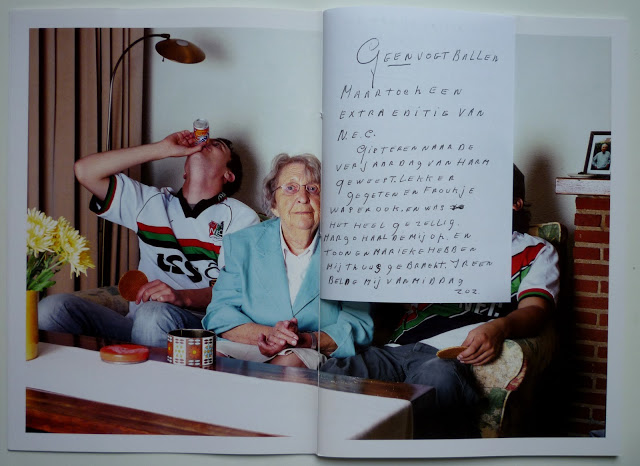 GEEN VOGTBALLEN
MAAR TOCH EEN
EXTRA EDITIG VAN
N.E.C.
GISTEREN NAAR DE
VERJAARDAG VAN HARM
GEWEEST. LEKKER
GEGETEN EN FROUKJE
WAS ER OOK. EN WAS
HET HEEL GEZELLIG.
MARGO HAALDE MIJ OP. EN
TOON EN MARIEKE HEBBEN
MIJ THUIS GEBRACHT. IREEN
BELDE MIJ VANMIDDAG
202